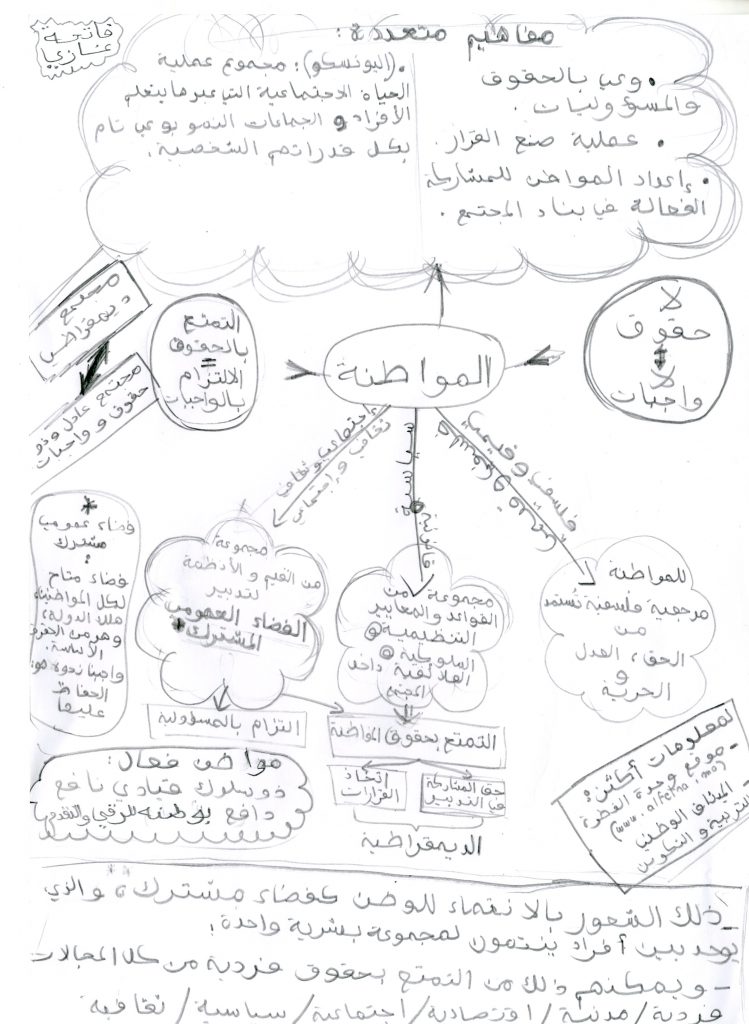 فاتحة
غازي
مفاهيم متعددة :
• وعي بالحقوق
والمسؤوليات.
• عملية صنع القرار.
• إعداد المواطن للمشاركة
الفعالة في بناء المجتمع.
• (اليونسكو): مجموع عملية
الحياة الاجتماعية التي عبرها يتعلم
الأفراد و الجماعات النمو بوعي تام
بكل قدراتهم الشخصية.
المواطنة
لا
حقوق
لا
واجبات
التمتع
بالحقوق
=
الالتزام
بالواجبات
مجتمع
ديمقراطي
مجتمع عادل وذو
حقوق و واجبات
إجتماعي وثقافي
ثقافي و إجتماعي
سياسية
قانونية
فلسفي وقيمي
للمواطنة
مرجعية فلسفية تستمد
من
الحق، العدل
و
الحرية
مجموعة من
القواعد والمعايير
التنظيمية
السلوكية
العلائقية داخل
المجتمع
مجموعة
من القيم و الأنظمة
لتدبير
الفضاء العمومي
المشترك *
*
فضاء عمومي
مشترك
:
فضاء متاح
لكل المواطنين
ملك الدولة،
وهو من الحقوق
الأساسية
واجبنا نحوه هو
الحفاظ
عليه
التزام بالمسؤولية
التمتع بحقوق المواطنة
حق المشاركة
في التدبير
اتخاذ
القرارات
الديمقراطية
مواطن فعال:
ذو سلوك قيادي نافع
دافع بوطنه للرقي والتقدم
لمعلومات أكثر:
- موقع وحدة الفطرة
- الميثاق الوطني
للتربية و التكوين
- ذلك الشعور بالانتماء للوطن كفضاء مشترك، والذي
يوحد بين أفراد ينتمون لمجموعة بشرية واحدة؛
- ويمكنهم ذلك من التمتع بحقوق فردية من كل المجالات
فردية / مدنية / اقتصادية / اجتماعية / سياسية / ثقافية